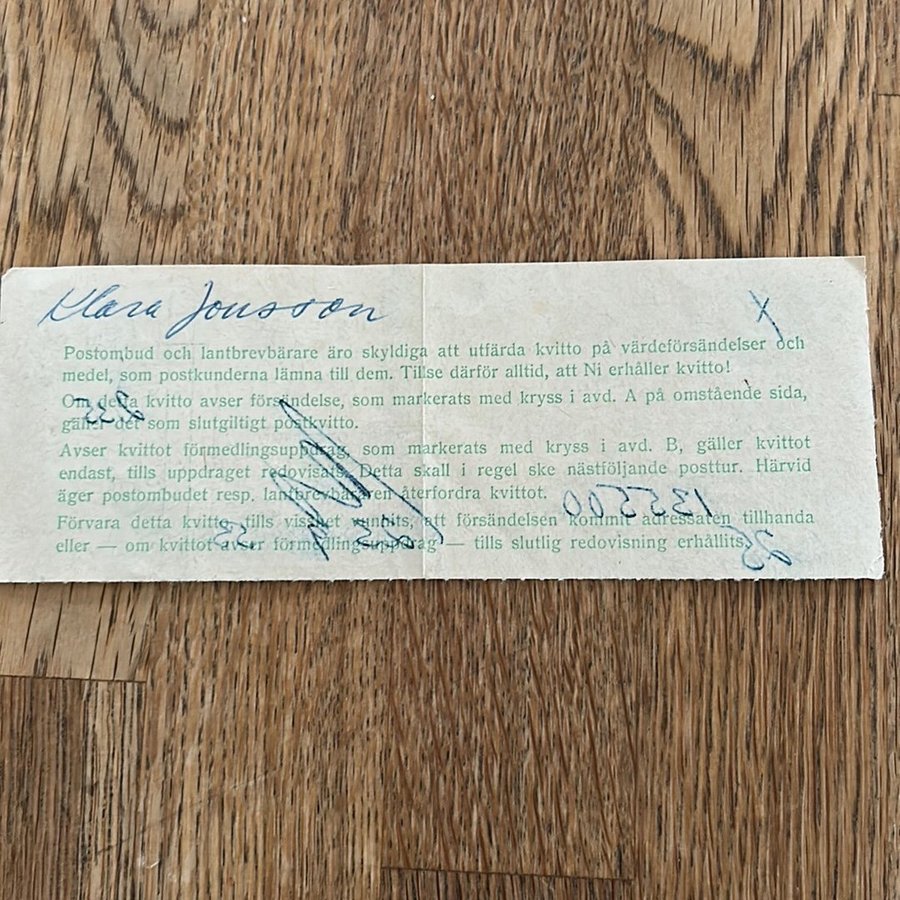 Klara Jonsson
x
Postombud och lantbrevbärare äro skyldiga att utfärda kvitto på värdeförsändelser och
medel, som postkunderna lämna till dem. Tillse därför alltid, att Ni erhåller kvitto!
Om detta kvitto avser försändelse, som markerats med kryss i avd. A på omstående sida,
gäller det som slutgiltigt postkvitto.
Avser kvittot förmedlingsuppdrag, som markerats med kryss i avd. B, gäller kvittot
endast, tills uppdraget redovisats. Detta skall i regel ske nästföljande posttur. Härvid
äger postombudet resp. lantbrevbäraren återfordra kvittot.
Förvara detta kvitto, tills visshet vunnits, att försändelsen kommit adressaten tillhanda
eller — om kvittot avser förmedlingsuppdrag — tills slutlig redovisning erhållits.